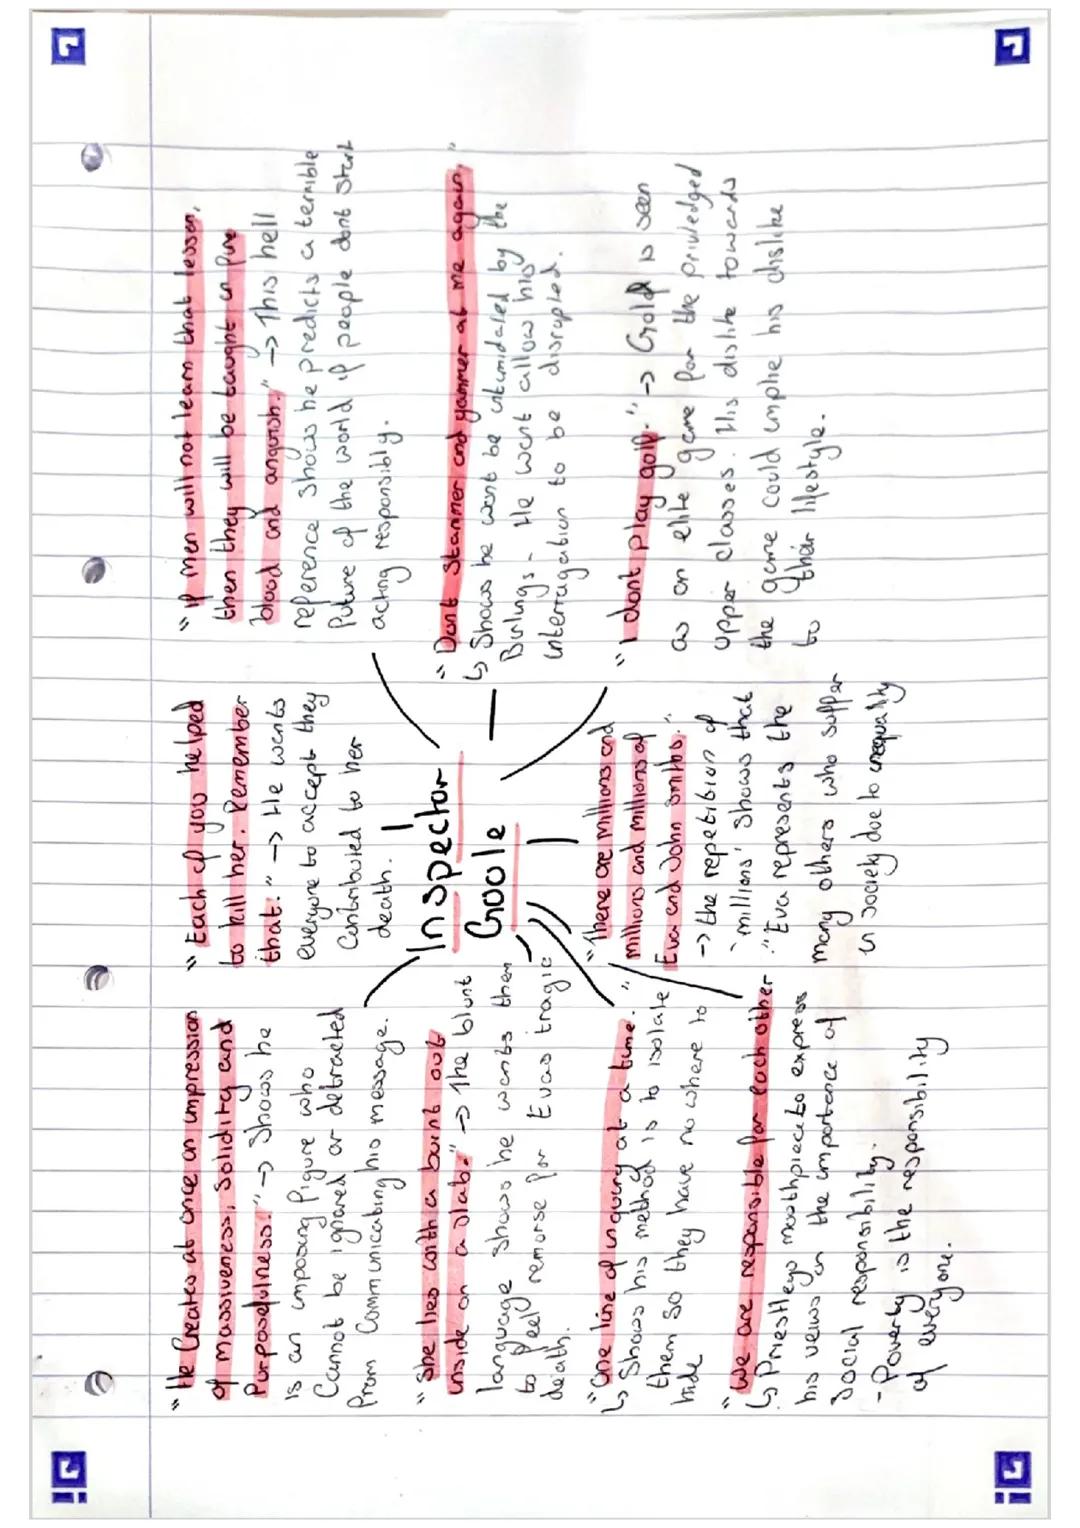 "He Creates at once an impression
of massiveness, Solidity and
Purposefulness." -> Shows he
is an imposing figure who
Cannot be ignored or detracted
from Communicating his message.
"She lies with a burnt out
inside on a slab." -> The blunt
language shows he wants them
to feel remorse for Evas tragic
death.
"One line of inquery at a time."
↳ Shows his method is to isolate
them so they have no where to
hide
"We are responsible for each other."
↳ Priestleys mouthpiece to express
his veiws on the importance of
Social responsibility.
- Poverty is the responsibility
of everyone.
"Each of you helped
to kill her. Remember
that." -> He wants
everyone to accept they
Contributed to her
death.
Inspector
Goole
"There are millions and
millions and millions of
Eva and John Smiths."
-> the repetition of
'millions' shows that
Eva represents the
many others who suffer
in society due to inequality
"If men will not learn that lesson,
then they will be taught in fire
blood and anguish." -> This hell
reference shows he predicts a terrible
future of the world if people dont start
acting responsibly.
"Dont Stammer and yammer at me again."
↳ Shows he wont be intimidated by the
Birlings - He wont allow his
interragation to be disrupted.
"I dont play golf." -> Golf is seen
as an elite game for the priviledged
upper classes. His dislite towards
the game could implie his dislike
to their lifestyle.